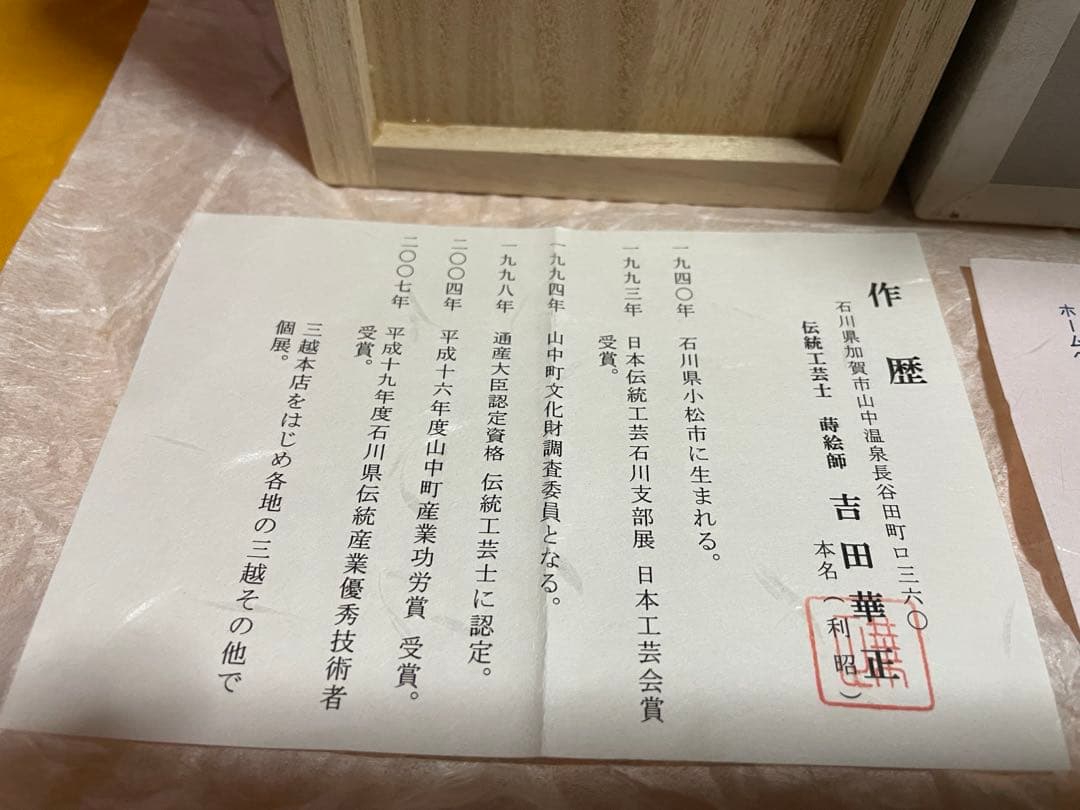 作歴
石川県加賀市山中温泉長谷田町ロ三六〇
伝統工芸士 蒔絵師 吉田華正
本名(利昭)
一九四〇年 石川県小松市に生まれる。
一九九三年 日本伝統工芸石川支部展 日本工芸会賞
受賞。
一九九四年 山中町文化財調査委員となる。
一九九八年 通産大臣認定資格 伝統工芸士に認定。
二〇〇四年 平成十六年度山中町産業功労賞 受賞。
二〇〇七年 平成十九年度石川県伝統産業優秀技術者
受賞。
三越本店をはじめ各地の三越その他で
個展。
ホームペ